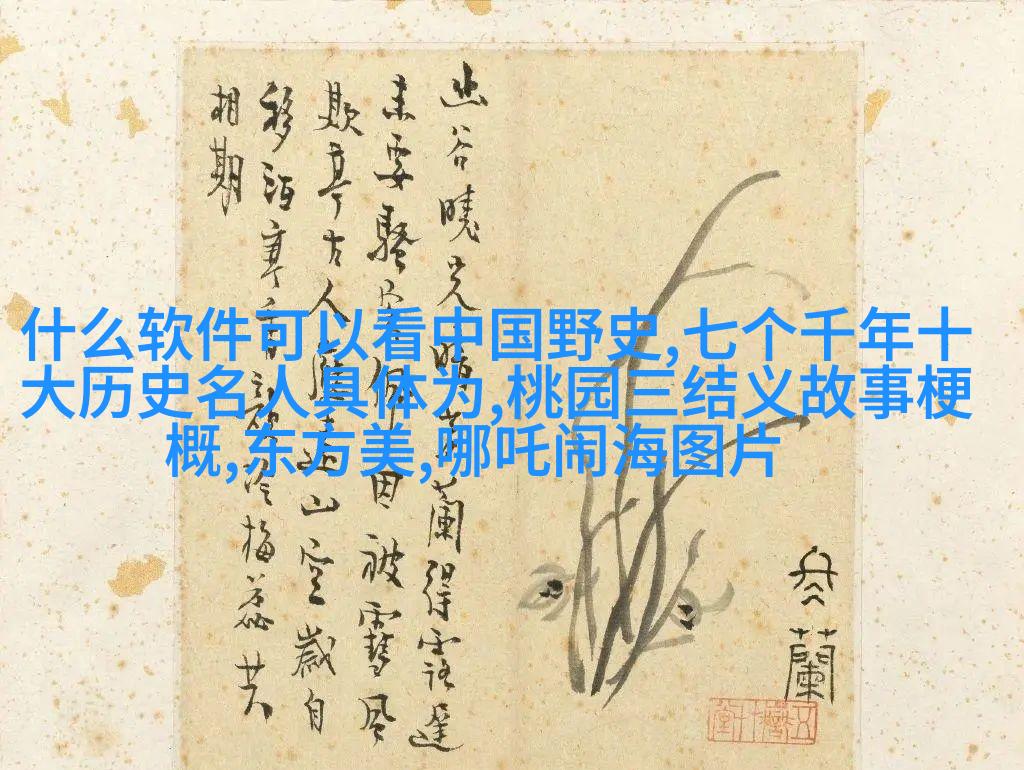 什么软件可以看中国野史,七个千年十
大历史名人具体为,桃园三结义故事梗
概,东方美,哪吒闹海图片
幽谷曉光晴蘭得露遲
未要騷客佩因被雪風
欺亭古人遠山空歲自
移酒寒香韻冷梅蕊共
相期
冬蘭